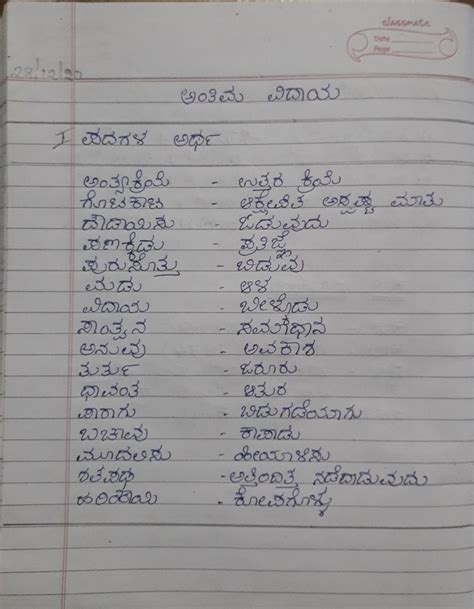 classmate
Date
Page
28/12/20
ಅಂತಿಮ ವಿದಾಯ
I ಪದಗಳ ಅರ್ಥ
ಅಂತ್ಯಕ್ರಿಯೆ - ಉತ್ತರ ಕ್ರಿಯೆ
ಗೊಟಕಾಟ - ಆಕ್ಷೇಪಿತ ಅಸ್ಪಷ್ಟ ಮಾತು
ದೌಡಾಯಿಸು - ಓಡುವುದು
ಪಣಕ್ಕಿಡು - ಪ್ರತಿಜ್ಞೆ
ಪುರುಸೊತ್ತು - ಬಿಡುವು
ಮಡು - ಆಳ
ವಿದಾಯ - ಬೀಳ್ಕೊಡು
ಸಾಂತ್ವನ - ಸಮಾಧಾನ
ಅನುವು - ಅವಕಾಶ
ತುರ್ತು - ಜರೂರು
ಧಾವಂತ - ಆತುರ
ಪಾರಾಗು - ಬಿಡುಗಡೆಯಾಗು
ಬಚಾವು - ಕಾಪಾಡು
ಮೂದಲಿಸು - ಹೀಯಾಳಿಸು
ಶತಪಥ - ಅತ್ತಿಂದಿತ್ತ ನಡೆದಾಡುವುದು
ಹರಿಹಾಯಿ - ಕೋಪಗೊಳ್ಳು